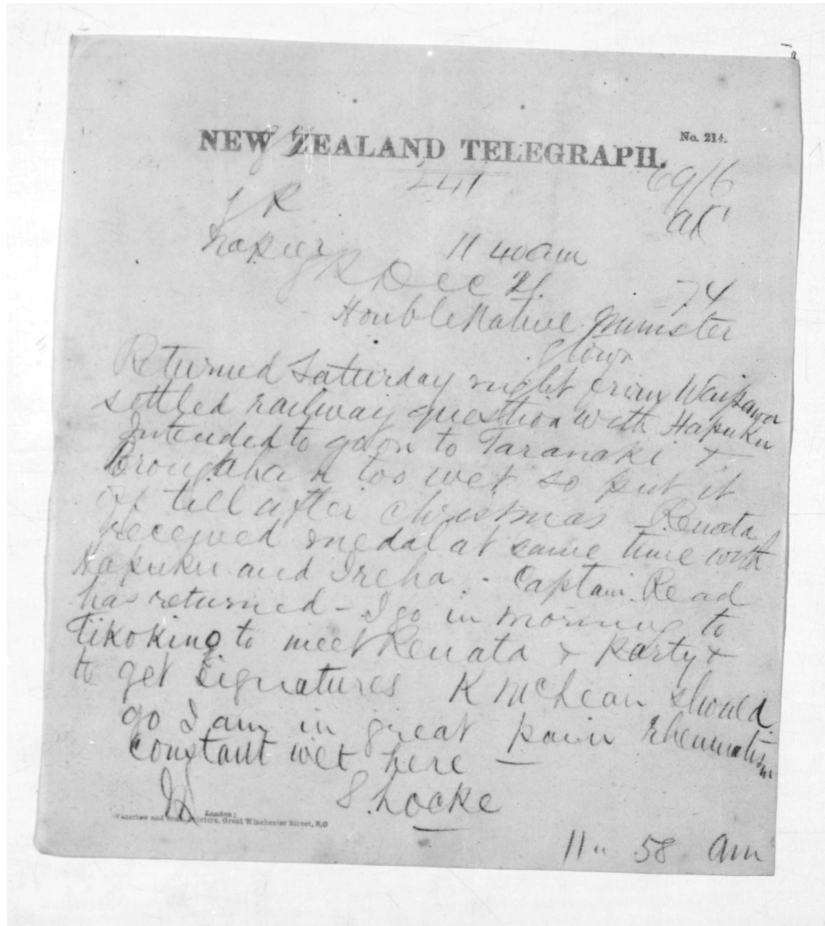 NEW ZEALAND TELEGRAPH.
No. 214.
241
69/6
Napier 11 40am
Dec 21 74
Honble Native Minister
Returned Saturday night from Waipawa
settled railway question with Hapuku
Intended to go on to Taranaki &
too wet so put it
off till after christmas - Renata
received medal at same time with
Hapuku and Ireha - Captain Read
has returned - I go in morning to
Tikoking to meet Renata & Party &
to get signatures K McLean should
go I am in great pain Rheumatism
constant wet here -
S. Locke
London:
Waterlow and Sons, Printers, Great Winchester Street, E.C
11 " 58 am